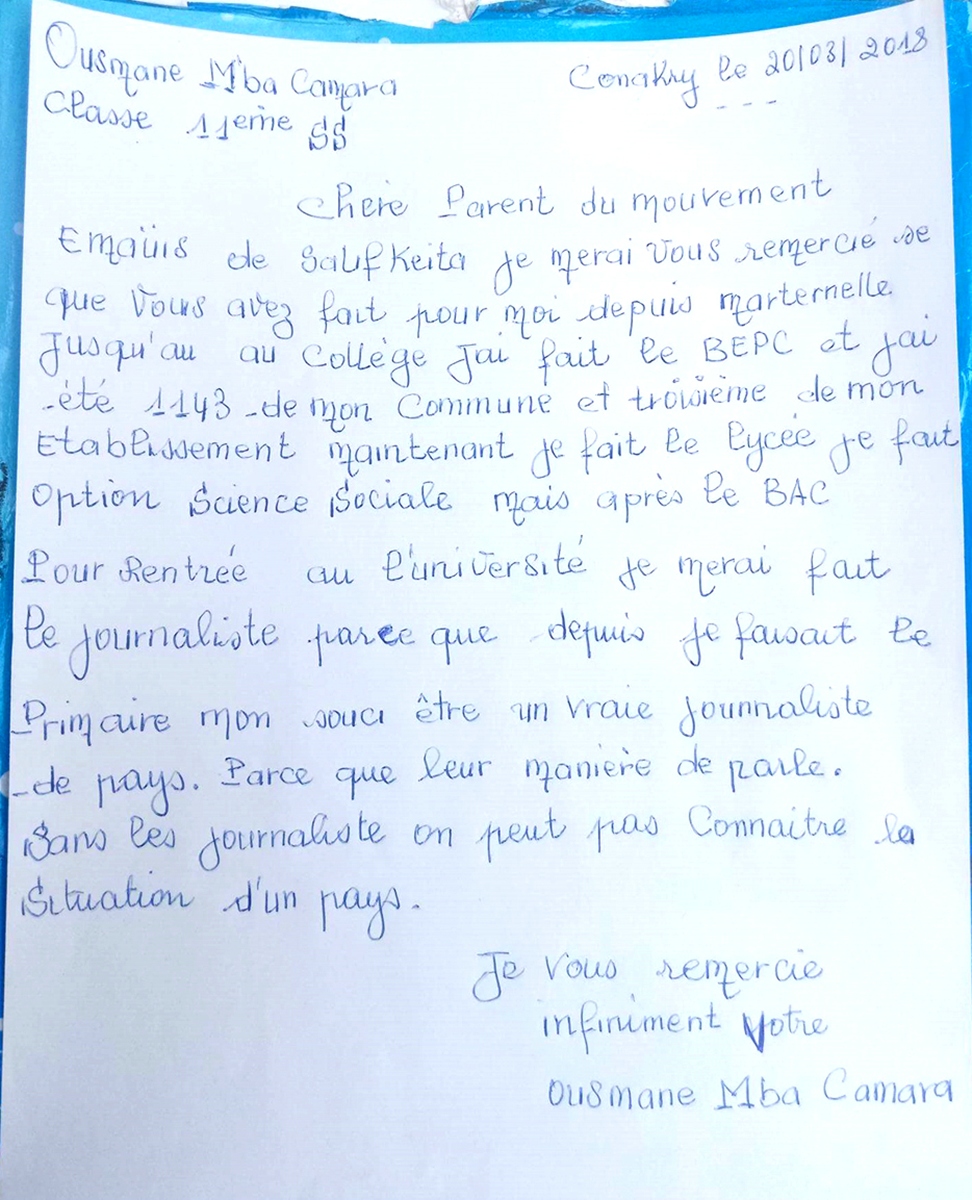 Ousmane M'ba Camara
Conakry le 20/03/2018
Classe 11ème SS
Chère Parent du mouvement
Emaüis de Salifkeita je merai vous remercié se
que vous avez fait pour moi depuis marternelle
Jusqu'au au Collège Jai fait le BEPC et jai
été 1143 de mon Commune et troisième de mon
Etablissement maintenant je fait le lycée je fait
option Science Sociale mais après le BAC
Pour Rentrée au l'université je merai fait
le journaliste parce que depuis je faisait le
Primaire mon souci être un vraie journaliste
de pays. Parce que leur manière de parle.
Sans les journaliste on peut pas Connaitre la
Situation d'un pays.
Je vous remercie
infiniment Votre
Ousmane Mba Camara